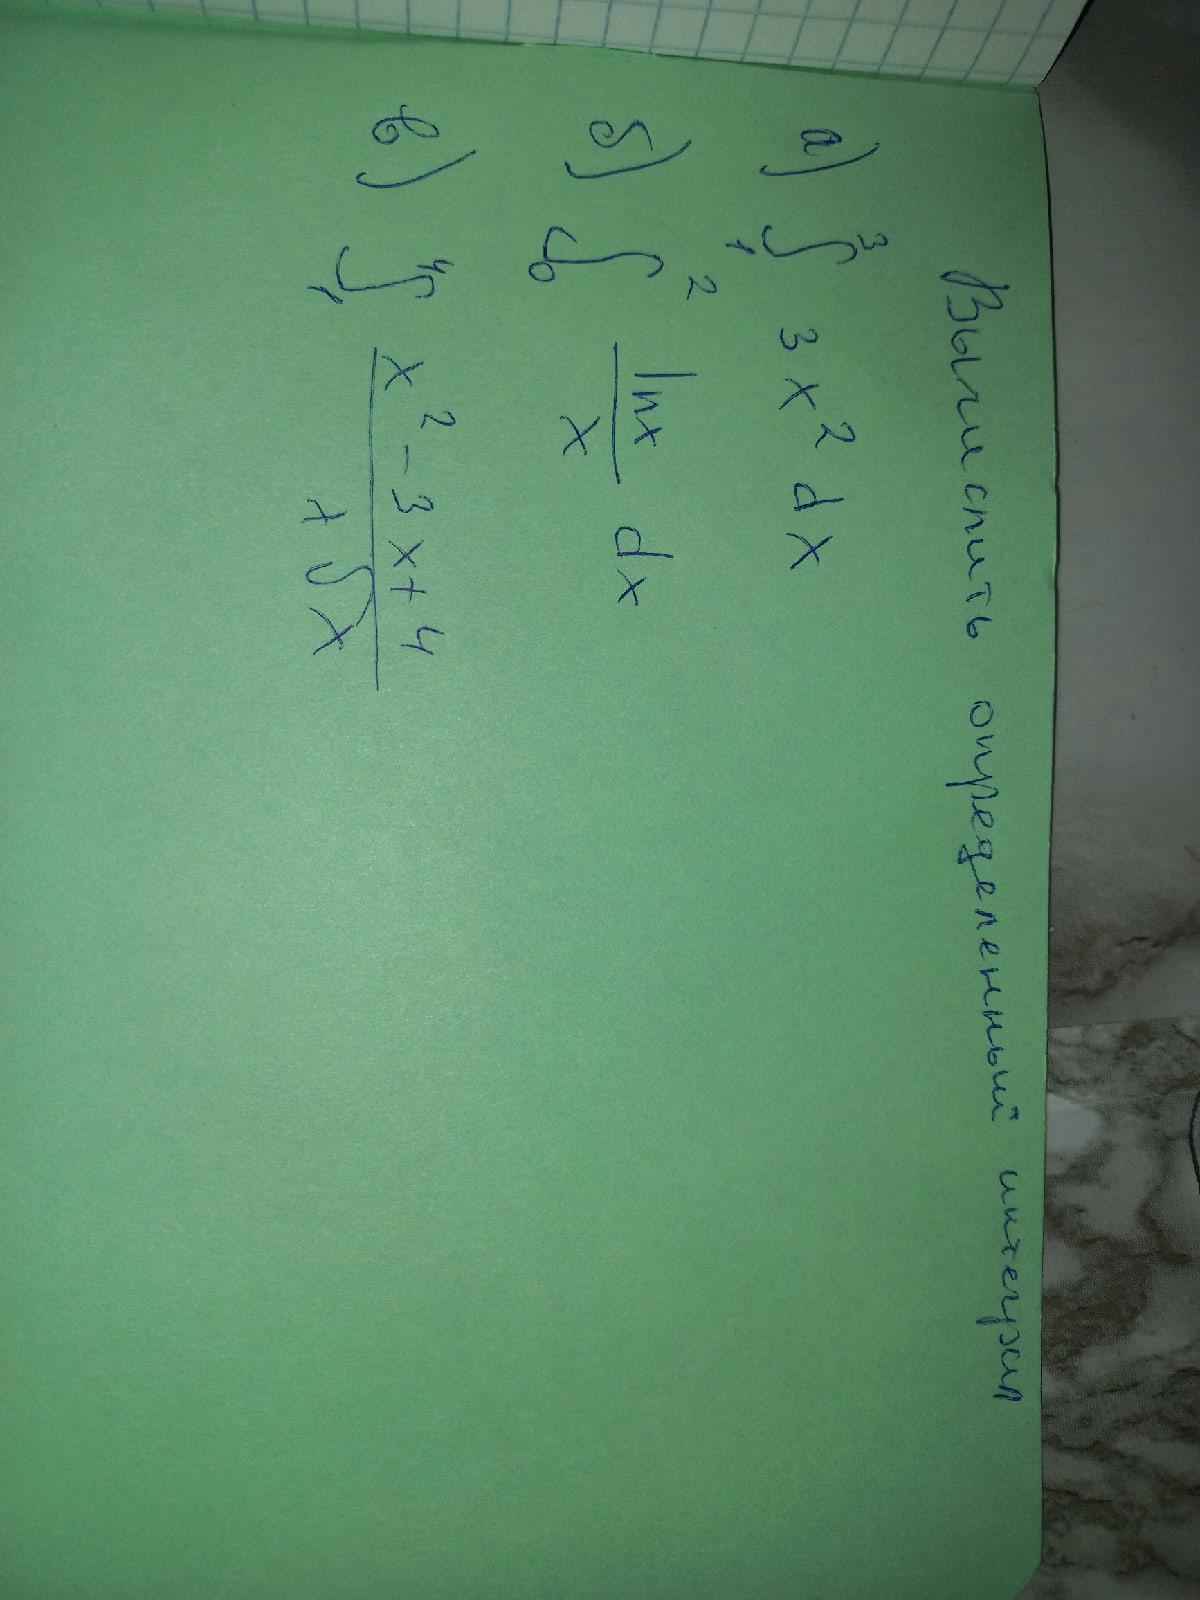 Вычислить определенный интеграл
а) ∫₁³ 3x² dx
б) ∫₀² lnx/x dx
в) ∫₁⁴ x² - 3x + 4 / x√x